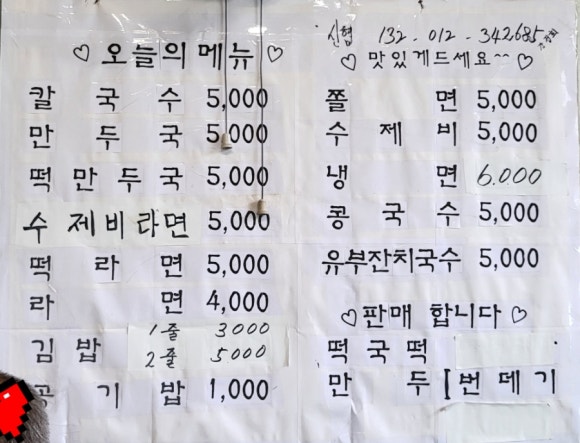 ♡ 오늘의 메뉴 ♡
칼 국 수 5,000
만 두 국 5,000
떡 만 두 국 5,000
수 제 비 라면 5,000
떡 라 면 5,000
라 면 4,000
김 밥 1줄 3000
2줄 5000
공 기 밥 1,000
신협 132-012-342685
♡ 맛있게드세요~~ ♡
쫄 면 5,000
수 제 비 5,000
냉 면 6.000
콩 국 수 5,000
유부잔치국수 5,000
♡ 판매 합니다 ♡
떡 국 떡
만 두 [ 번 데 기